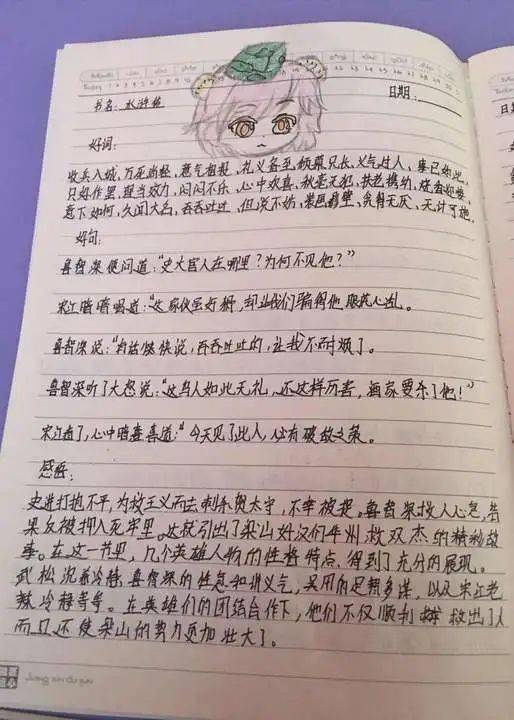 书名: 水浒传
日期:
好词:
收兵入城, 万死尚轻, 意气相投, 礼义各至, 义气过人, 事已如此,
只好作罢, 理当效力, 闷闷不乐, 心中欢喜, 秋毫无犯, 扶老携幼, 烧香迎接
意下如何, 久闻大名, 吞吞过过, 但说不妨, 贪得无厌, 无计可施,
好句:
鲁智深便问道:“史大官人在哪里?为何不见他?”
宋江暗暗喝道:“这家伙
鲁智深说:“有话便快说, 吞吞过过的, 让我不耐烦了。
鲁智深听了大怒说:“这鸟人如此无礼, 还这样厉害, 洒家要杀了他!”
宋江看了, 心中暗暗喜道:“今天见了此人, 必有破敌之策。
感悟:
史进打抱不平, 为救王义而去刺杀贺太守, 不幸被捉。鲁智深救人心急, 结
果反被押入死牢里。这就引出了梁山好汉们华州救双杰的精彩故
事。在这一节里, 几个英雄人物的性格特点, 得到了充分的展现。
武松沉着冷静, 鲁智深的性急和讲义气, 吴用的足智多谋, 以及宋江老
辣冷静等等。在英雄们的团结合作下, 他们不仅顺利 救出了人
而且还使梁山的势力更加壮大了。